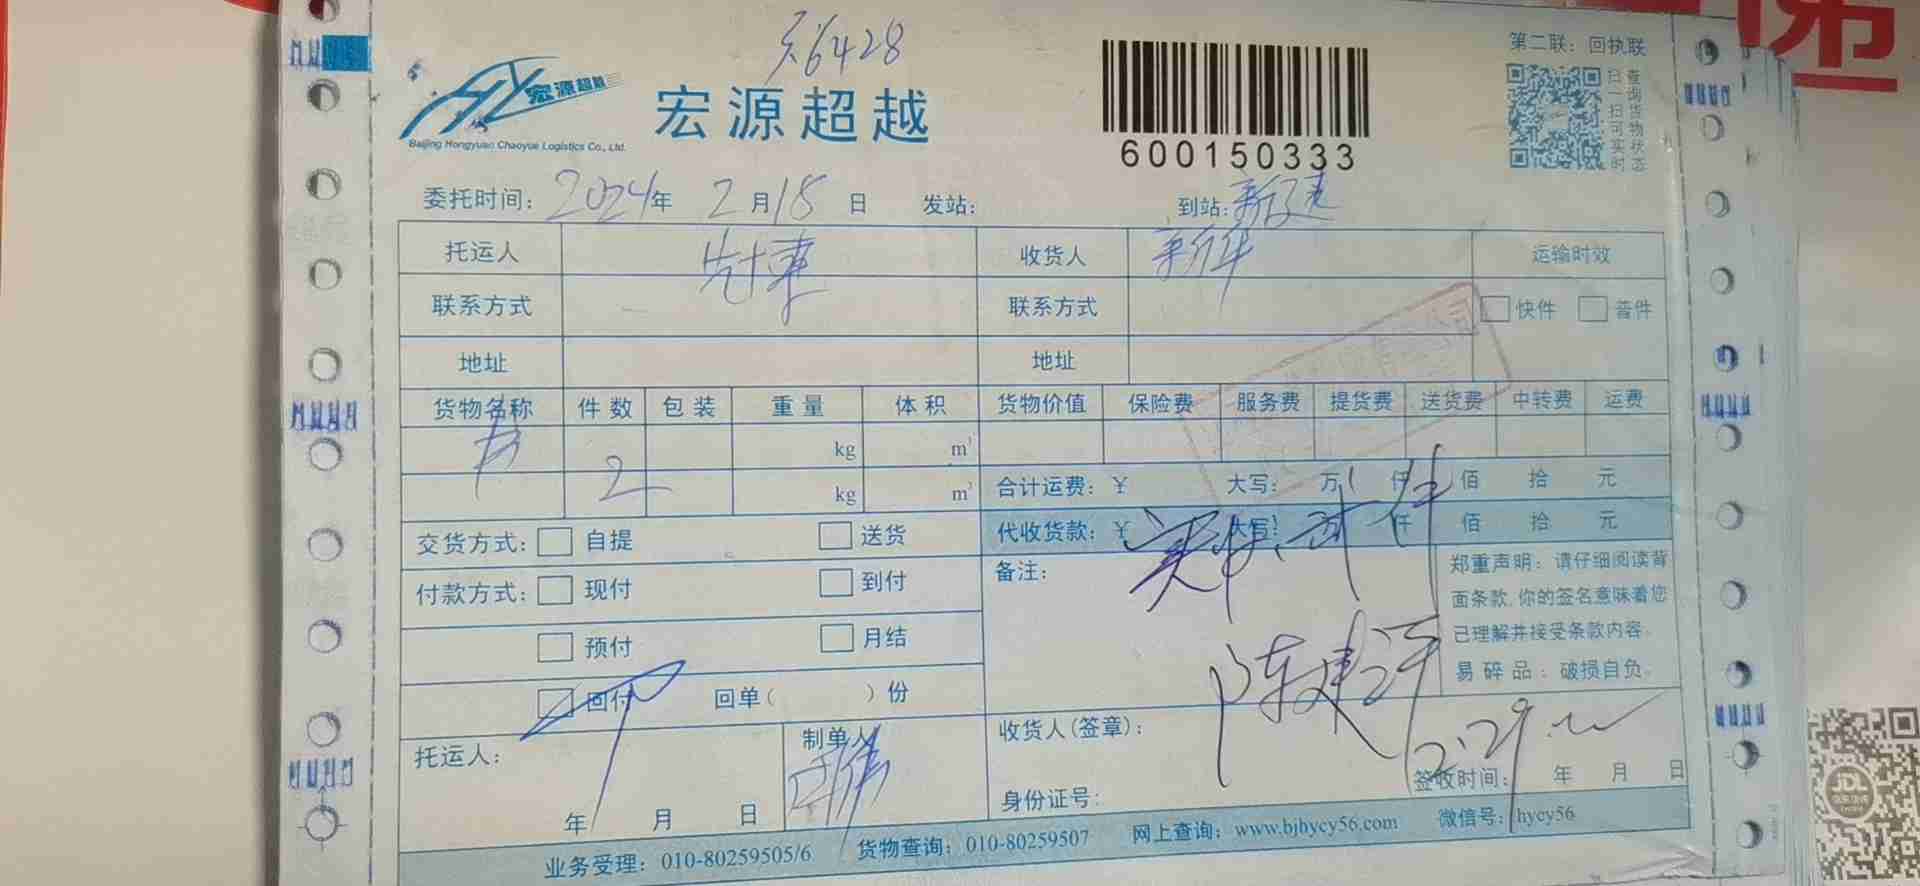 宏源超越
Beijing Hongyuan Chaoyue Logistics Co., Ltd.
宏源超越
6428
600150333
第二联：回执联
扫一扫可实时
查询货物状态
委托时间： 2024 年 2 月 18 日 发站： 到站： 新疆
托运人 收货人 新华 运输时效
联系方式 联系方式 快件 普件
地址 地址
货物名称 件数 包装 重量 体积 货物价值 保险费 服务费 提货费 送货费 中转费 运费
书 kg m³
2 kg m³ 合计运费：￥ 大写： 万 仟 佰 拾 元
交货方式： 自提 送货 代收货款：￥ 大写： 万 仟 佰 拾 元
付款方式： 现付 到付 备注：
预付 月结
回付 回单（ ）份
郑重声明：请仔细阅读背
面条款,你的签名意味着您
已理解并接受条款内容。
易碎品：破损自负。
托运人： 制单人 收货人(签章)：
陈建 2.29
年 月 日 身份证号： 签收时间： 年 月 日
业务受理：010-80259505/6 货物查询：010-80259507 网上查询：www.bjhycy56.com 微信号：hycy56
递